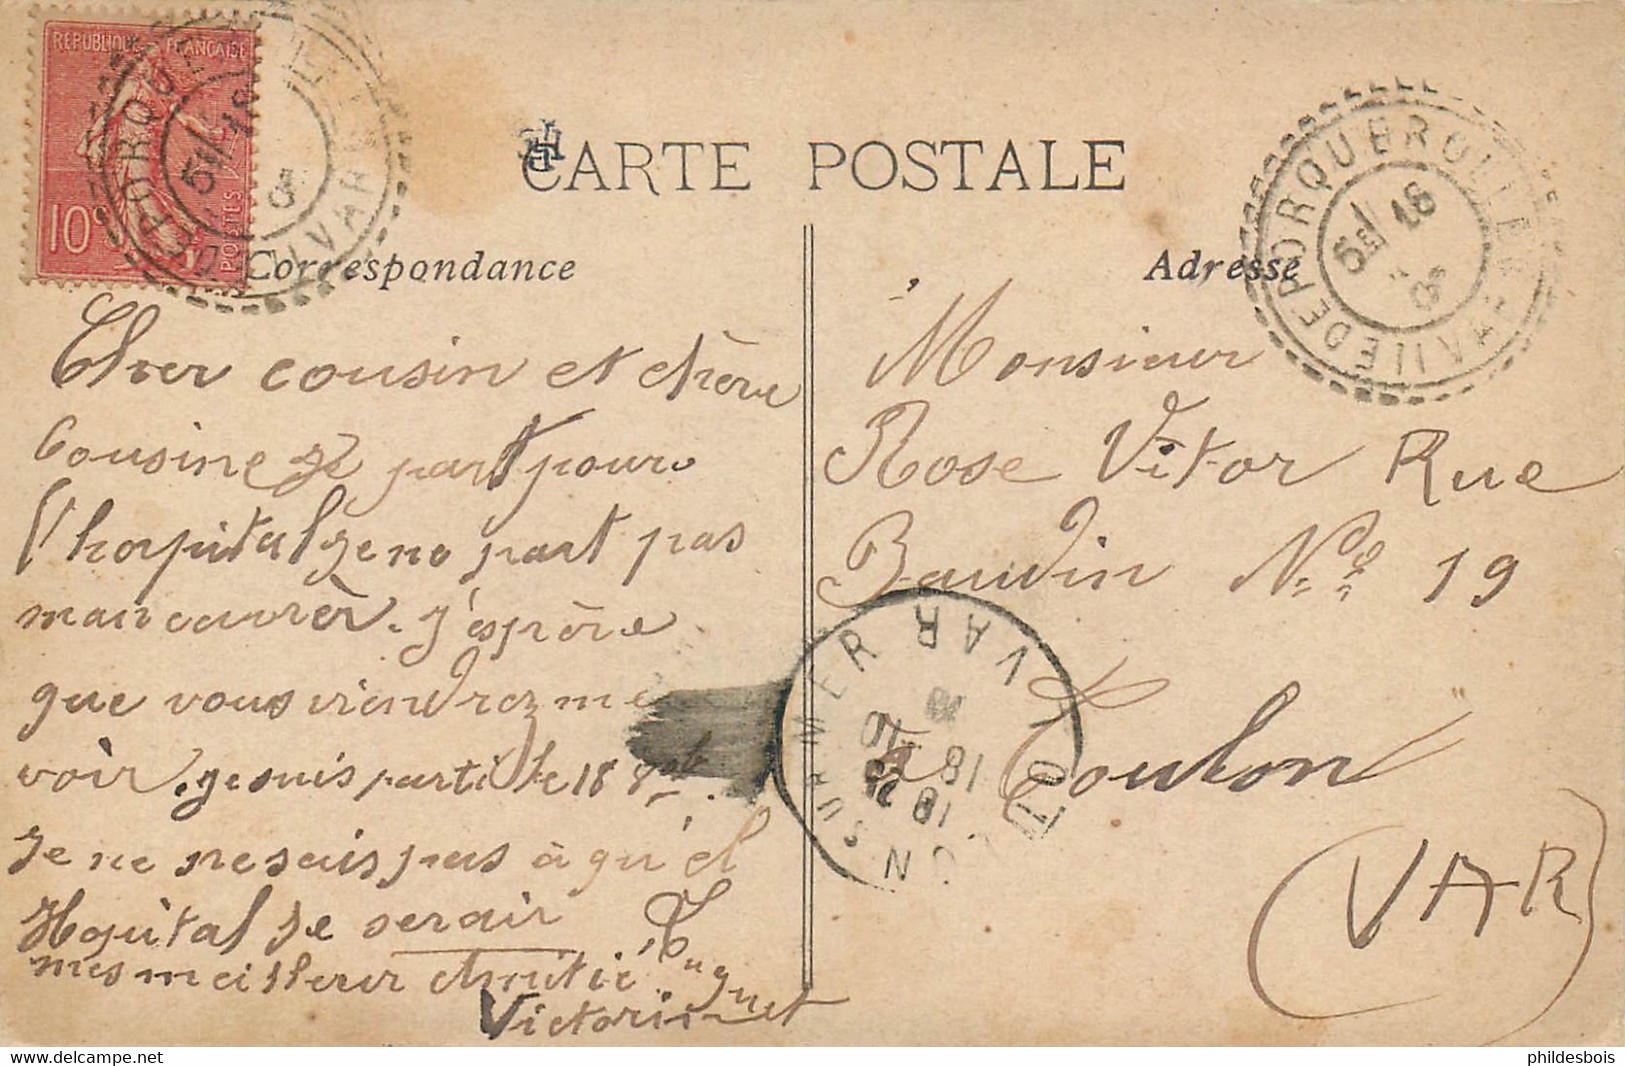 REPUBLIQUE FRANCAISE
10c POSTES
CARTE POSTALE
Correspondance
Adresse
ILE DE PORQUEROLLES VAR
Cher cousin et chère
cousine ge part pour
l'hospital ge no part pas
j'espère
que vous viendrez me
voir. ge suis parti le 18
Je ne sais pas à qu'él
Hopital Je serair
mes meilleur amitié
Victorin
Monsieur
Rose Vitor Rue
Baudin No 19
Toulon
(VAR)
TOULON SUR MER VAR
phildesbois